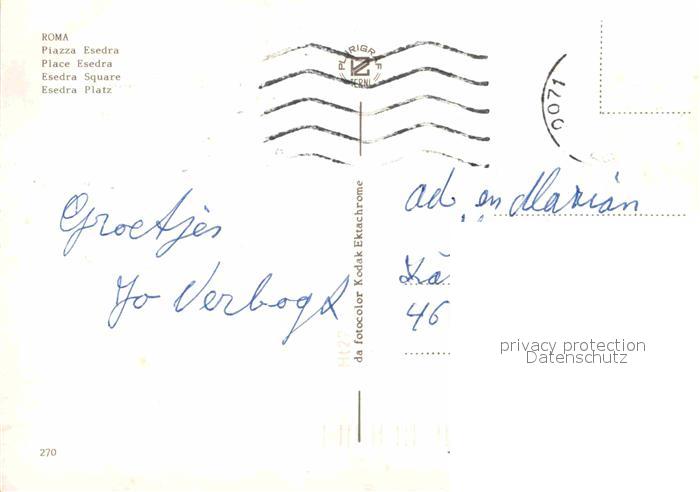 ROMA
Piazza Esedra
Place Esedra
Esedra Square
Esedra Platz
PLURIGRAF
TERNI
0071
Groetjes
Jo Verbogt
ad en Marian
46
da fotocolor Kodak Ektachrome
privacy protection
Datenschutz
270